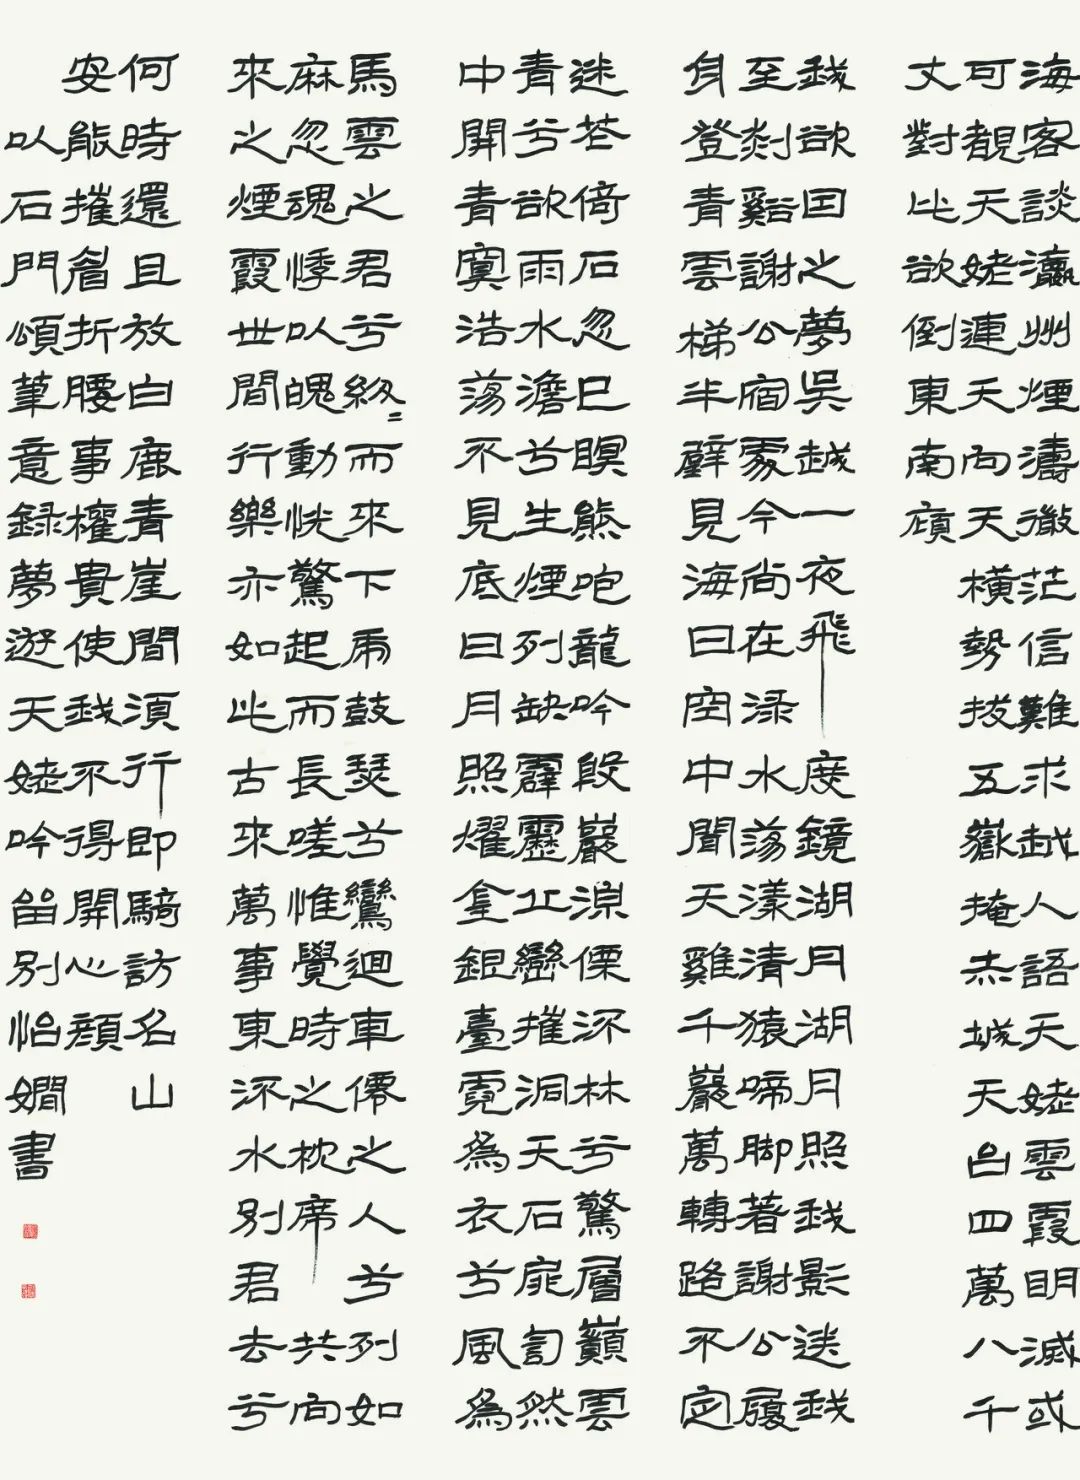 海客談瀛州煙濤微茫信難求越人語天姥雲霞明滅或
可覩天姥連天向天橫勢拔五嶽掩赤城天台四萬八千
丈對此欲倒東南傾
我欲因之夢吳越一夜飛度鏡湖月湖月照我影送我
至剡谿謝公宿處今尚在淥水蕩漾清猿啼脚著謝公屐
身登青雲梯半壁見海日空中聞天雞千巖萬轉路不定
迷花倚石忽已暝熊咆龍吟殷巖湶慄深林兮驚層巔雲
青兮欲雨水澹兮生煙列缺霹靂丘巒摧洞天石扉訇然
中開青冥浩蕩不見底日月照耀金銀臺霓為衣兮風為
馬雲之君兮紛〻而來下虎鼓瑟兮鸞迴車僊之人兮列如
麻忽魂悸以魄動怳驚起而長嗟惟覺時之枕席失向
來之煙霞世間行樂亦如此古來萬事東流水別君去兮
何時還且放白鹿青崖間須行即騎訪名山
安能摧眉折腰事權貴使我不得開心顏
以石門頌筆意錄夢遊天姥吟留別怡嫺書